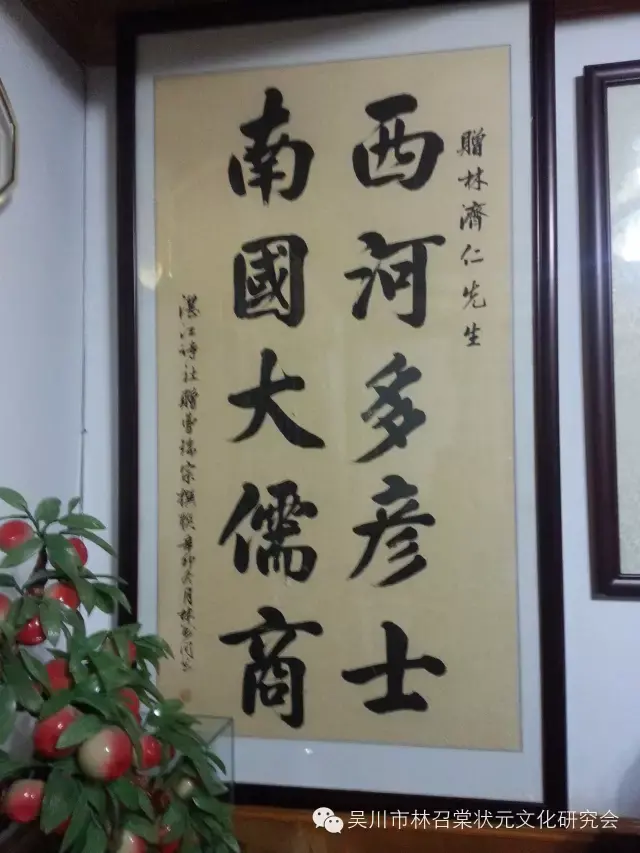 贈林濟仁先生
西河多彦士
南國大儒商
湛江诗社贈曹瑞宗撰联辛卯六月林
吴川市林召棠状元文化研究会